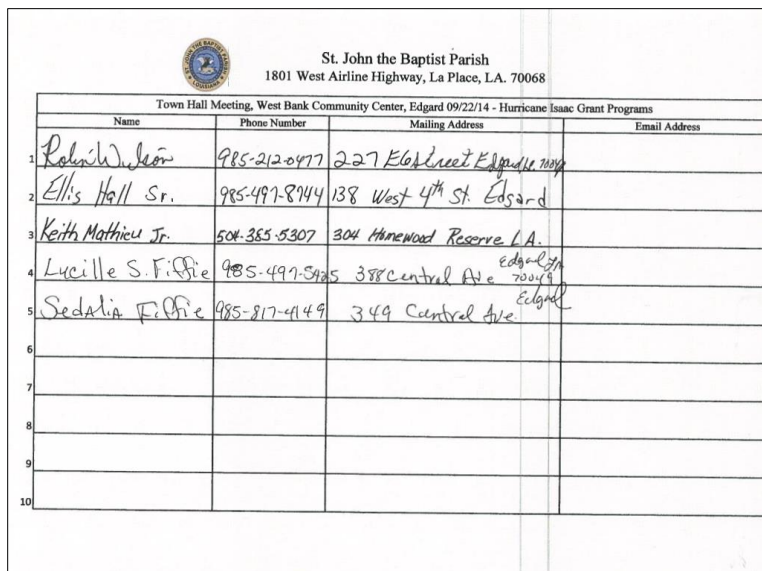 ST. JOHN THE BAPTIST PARISH
LOUISIANA
St. John the Baptist Parish
1801 West Airline Highway, La Place, LA. 70068
Town Hall Meeting, West Bank Community Center, Edgard 09/22/14 - Hurricane Isaac Grant Programs
Name Phone Number Mailing Address Email Address
1 Robin Wilson 985-212-0477 227 E 6 Street Edgard
2 Ellis Hall Sr. 985-497-8744 138 West 4th St. Edgard
3 Keith Mathieu Jr. 504-385-5307 304 Homewood Reserve L.A.
4 Lucille S. Fiffie 985-497-5425 388 Central Ave Edgard 70049
5 SedAliA Fiffie 985-817-4149 349 Central Ave. Edgard
6
7
8
9
10